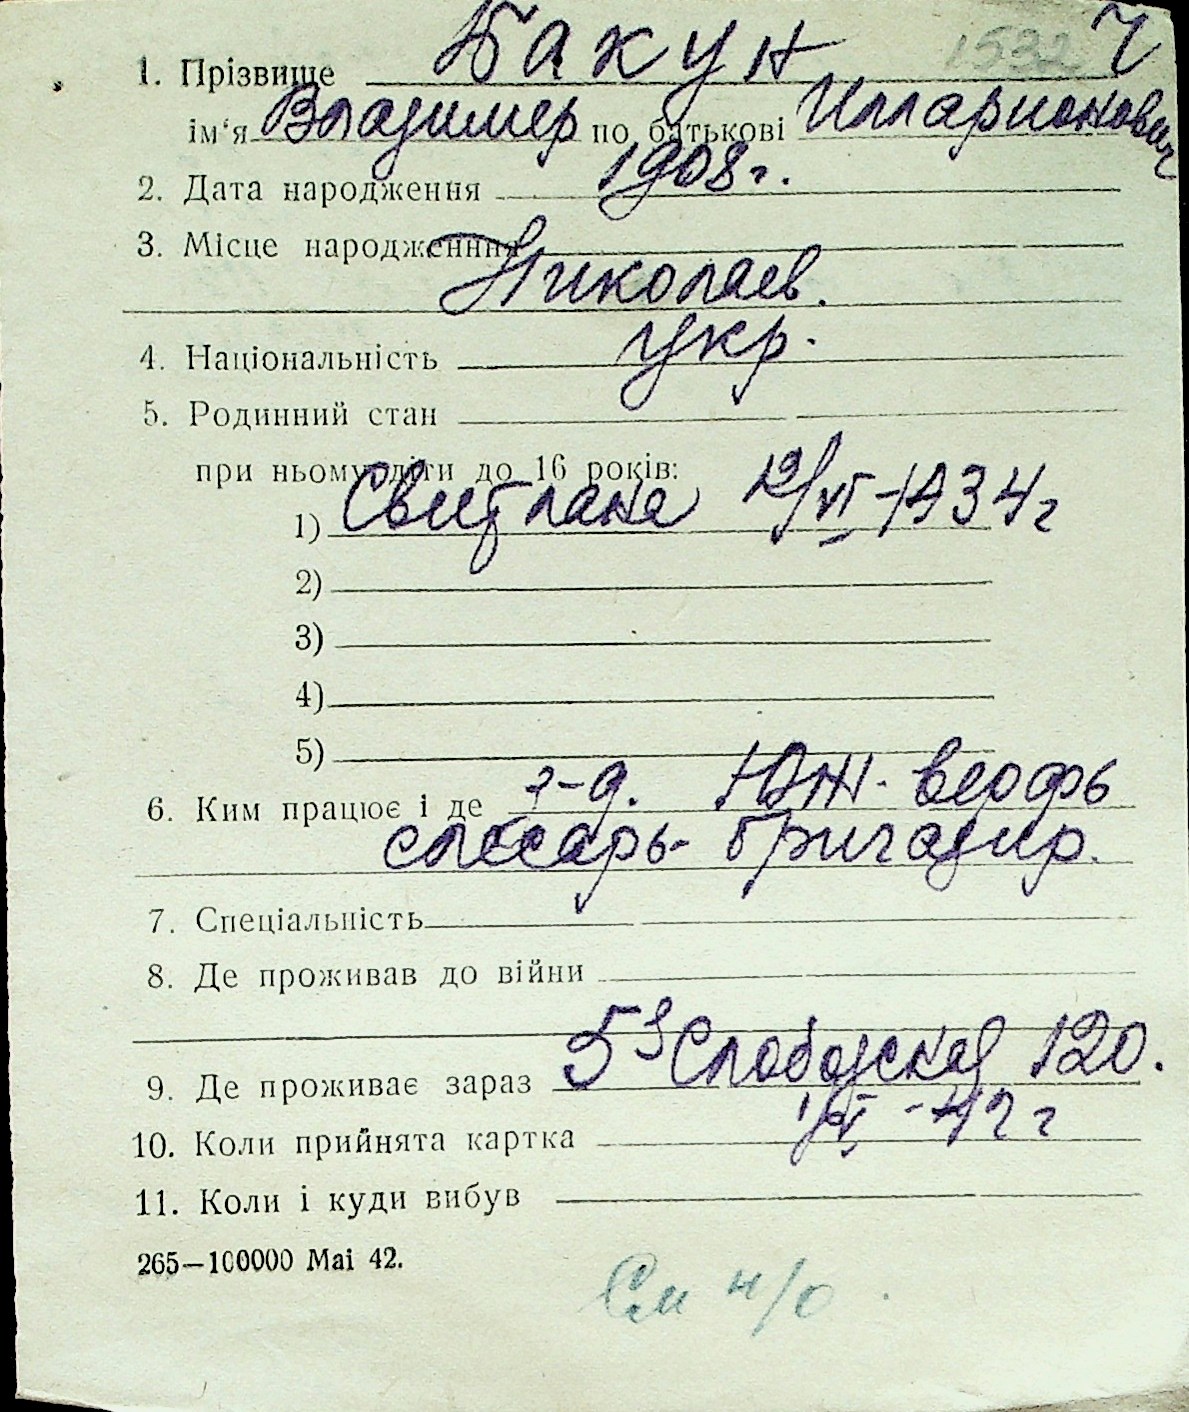 1532 Ч
1. Прізвище Бакун
ім'я Владимир по батькові Илларионович
2. Дата народження 1908 г.
3. Місце народженння
Николаев.
4. Національність укр.
5. Родинний стан
при ньому діти до 16 років:
1) Свитлана 19/VI-1934 г
2)
3)
4)
5)
6. Ким працює і де з-д. Юж. верфь
слесарь-бригадир.
7. Спеціальність
8. Де проживав до війни
9. Де проживає зараз 5 Слободская 120.
10. Коли прийнята картка -42 г
11. Коли і куди вибув
265—100000 Mai 42.
См н/о.